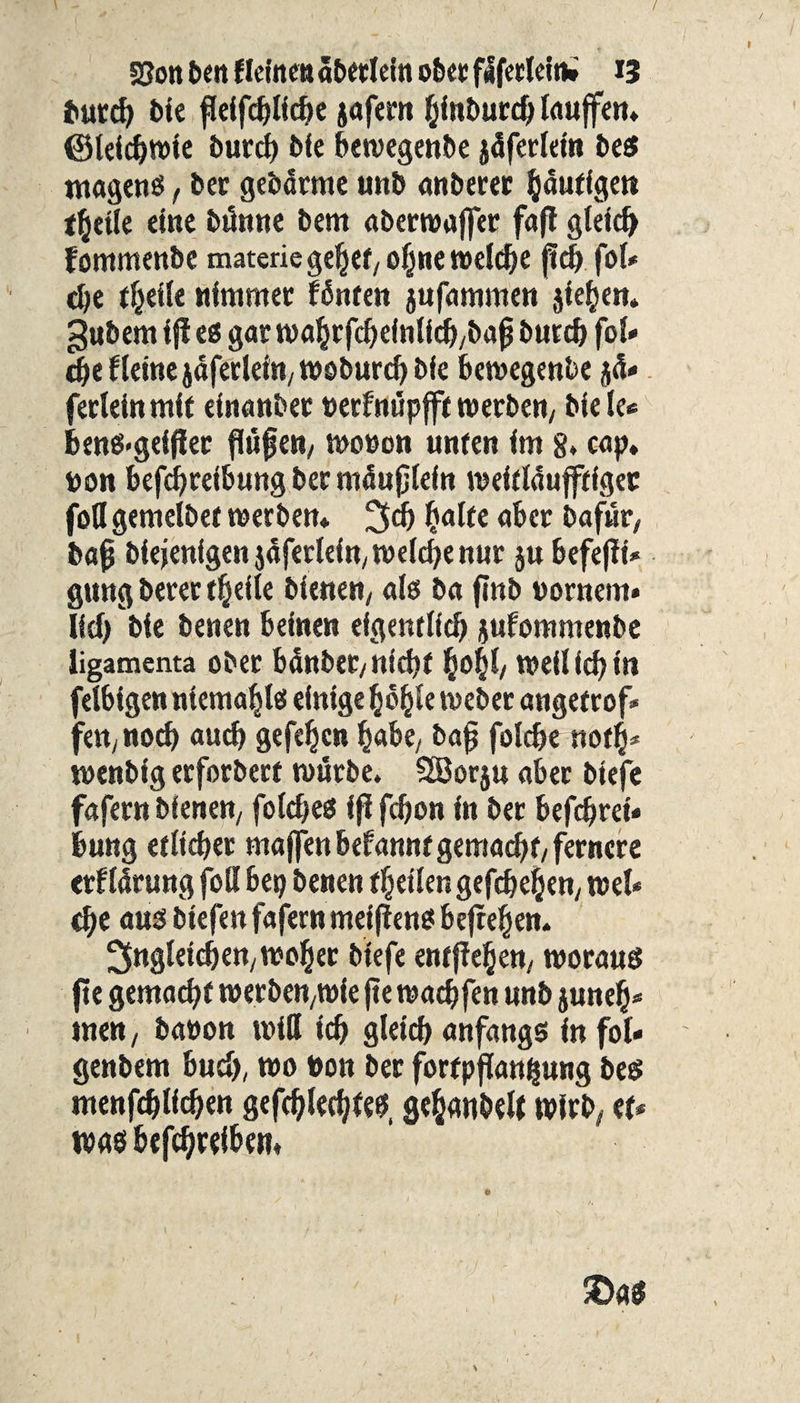 Von den kleinen äderlein oder fäserlein. 13
durch die fleischliche zasern hindurch lauffen.
Gleichwie durch die bewegende zäserlein des
magens, der gedärme und anderer häutigen
theile eine dünne dem aderwasser fast gleich
kommende materie gehet, ohne welche sich sol-
che theile nimmer könten zusammen ziehen.
Zudem ist es gar wahrscheinlich, daß durch sol-
che kleine zäserlein, wodurch die bewegende zä-
serlein mit einander verknüpfft werden, die le-
bens-geister flüßen, wovon unten im 8. cap.
von beschreibung der mäußlein weitläufftiger
soll gemeldet werden. Ich halte aber dafür,
daß diejenigen zäserlein, welche nur zu befesti-
gung derer theile dienen, als da sind vornem-
lich die denen beinen eigentlich zukommende
ligamenta oder bänder, nicht hohl, weil ich in
selbigen niemahls einige höhle weder angetrof-
fen, noch auch gesehen habe, daß solche noth-
wendig erfordert würde. Worzu aber diese
fasern dienen, solches ist schon in der beschrei-
bung etlicher massen bekannt gemacht, fernere
erklärung soll bey denen theilen geschehen, wel-
che aus diesen fasern meistens bestehen.
Ingleichen, woher diese entstehen, woraus
sie gemacht werden, wie sie wachsen und zuneh-
men, davon will ich gleich anfangs in fol-
gendem buch, wo von der fortpflantzung des
menschlichen geschlechtes gehandelt wird, et-
was beschreiben.
Das